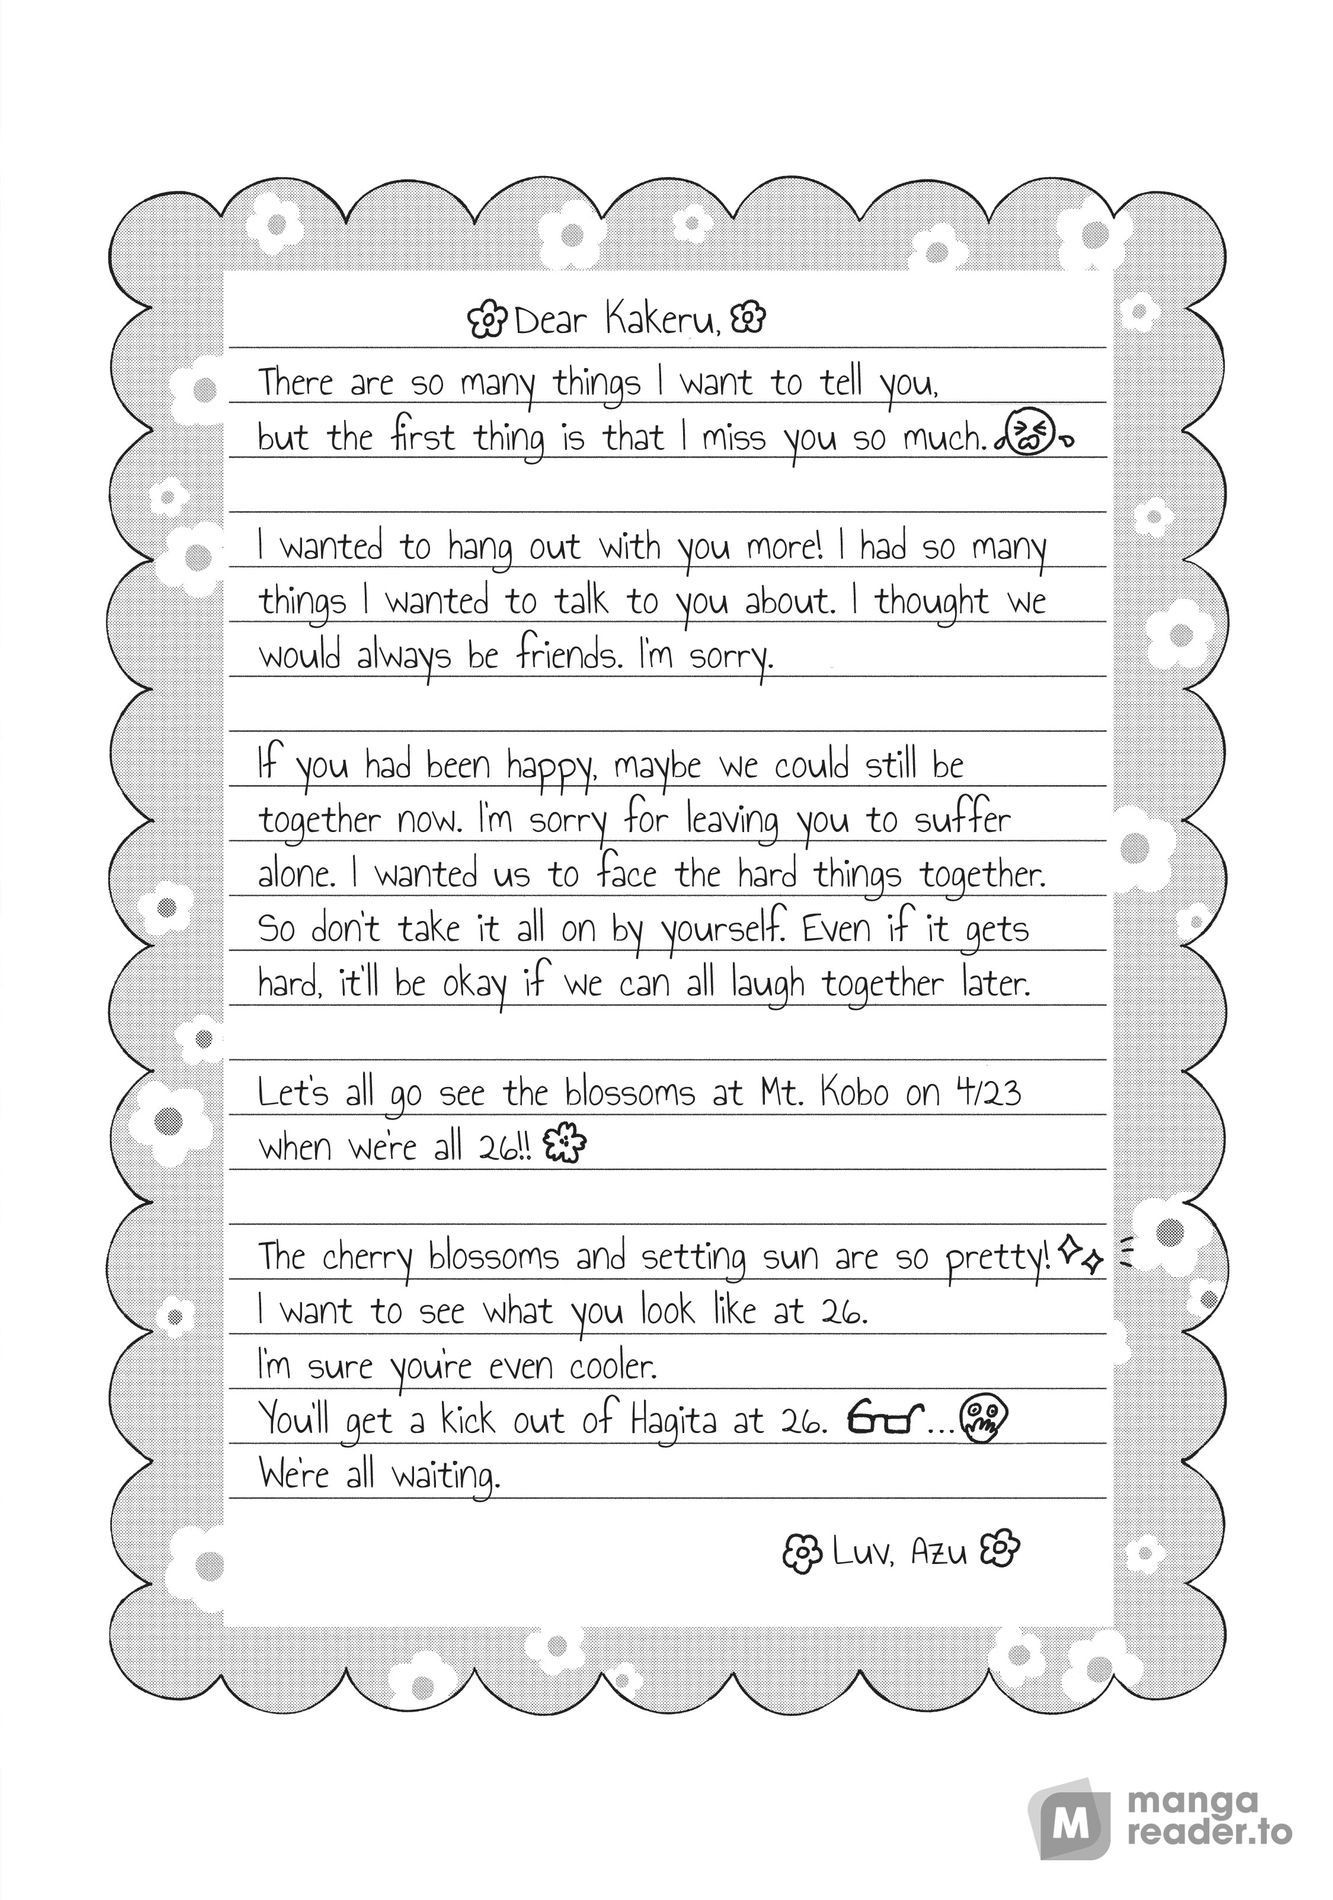 Dear Kakeru,
There are so many things I want to tell you,
but the first thing is that I miss you so much.
I wanted to hang out with you more! I had so many
things I wanted to talk to you about. I thought we
would always be friends. I'm sorry.
If you had been happy, maybe we could still be
together now. I'm sorry for leaving you to suffer
alone. I wanted us to face the hard things together.
So don't take it all on by yourself. Even if it gets
hard, it'll be okay if we can all laugh together later.
Let's all go see the blossoms at Mt. Kobo on 4/23
when we're all 26!!
The cherry blossoms and setting sun are so pretty!
I want to see what you look like at 26.
I'm sure you're even cooler.
You'll get a kick out of Hagita at 26. ...
We're all waiting.
Luv, Azu
M manga
reader.to